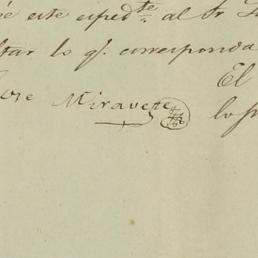 é este exped.te al Sr
tar lo q.e corresponda
El
Miravete